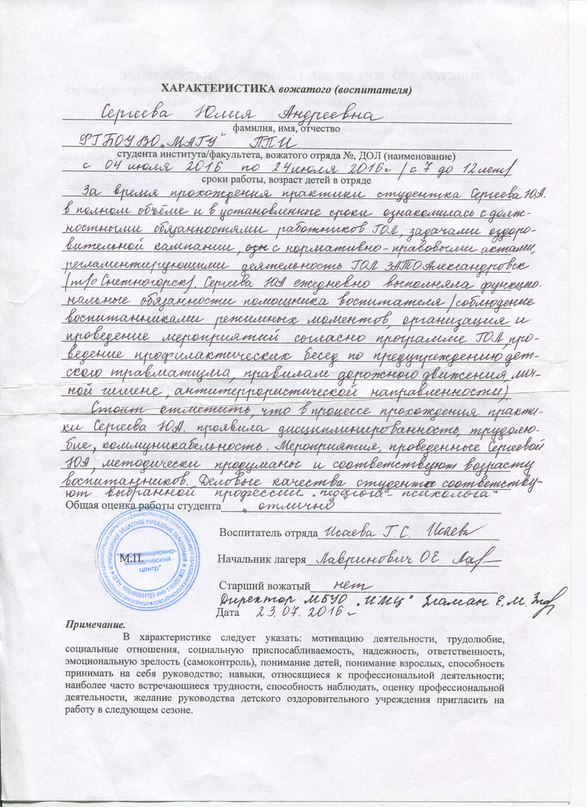 ХАРАКТЕРИСТИКА вожатого (воспитателя)
Сергеева Юлия Андреевна
фамилия, имя, отчество
ФГБОУ ВО „МАГУ" ППИ
студента института/факультета, вожатого отряда №, ДОЛ (наименование)
с 04 июля 2016 по 24 июля 2016 г. (с 7 до 12 лет)
сроки работы, возраст детей в отряде
За время прохождения практики студентка Сергеева Ю.А.
в полном объёме и в установленные сроки ознакомилась с долж-
ностными обязанностями работников ГОЛ, задачами оздоро-
вительной кампании, с нормативно-правовыми актами,
регламентирующими деятельность ГОЛ ЗАТО Александровск
(н/о Снежногорск). Сергеева ЮА ежедневно выполняла функцио-
нальные обязанности помощника воспитателя (соблюдение
воспитанниками режимных моментов, организация и
проведение мероприятий согласно программе ГОЛ, про-
ведение профилактических бесед по предупреждению дет-
ского травматизма, правилам дорожного движения, лич-
ной гигиене, антитеррористической направленности)
Стоит отметить, что в процессе прохождения практи-
ки Сергеева Ю.А. проявила дисциплинированность, трудолю-
бие, коммуникабельность. Мероприятия, проведенные Сергеевой
Ю.А, методически продуманы и соответствуют возрасту
воспитанников. Деловые качества студентки соответству-
ют выбранной профессии „педагога-психолога"
Общая оценка работы студента „отлично
Воспитатель отряда Исаева Г.С. Исаева
М.П. Начальник лагеря Лавринович ОЕ Лав
центр"
Старший вожатый нет
Директор МБУО „ИМЦ" Зламан Е.М.
Дата 23.07.2016 г
Примечание.
В характеристике следует указать: мотивацию деятельности, трудолюбие,
социальные отношения, социальную приспосабливаемость, надежность, ответственность,
эмоциональную зрелость (самоконтроль), понимание детей, понимание взрослых, способность
принимать на себя руководство; навыки, относящиеся к профессиональной деятельности;
наиболее часто встречающиеся трудности, способность наблюдать, оценку профессиональной
деятельности, желание руководства детского оздоровительного учреждения пригласить на
работу в следующем сезоне.